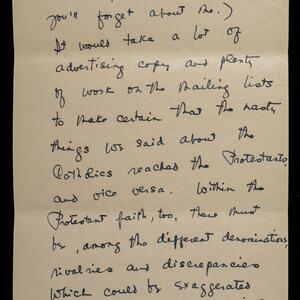 you'll forget about me.)
It would take a lot of
advertising copy and plenty
of work on the mailing lists
to make certain that the nasty
things we said about the
Catholics reached the Protestants,
and vice versa. Within the
Protestant faith, too, there must
be, among the different denominations,
rivalries and discrepancies
which could be exaggerated